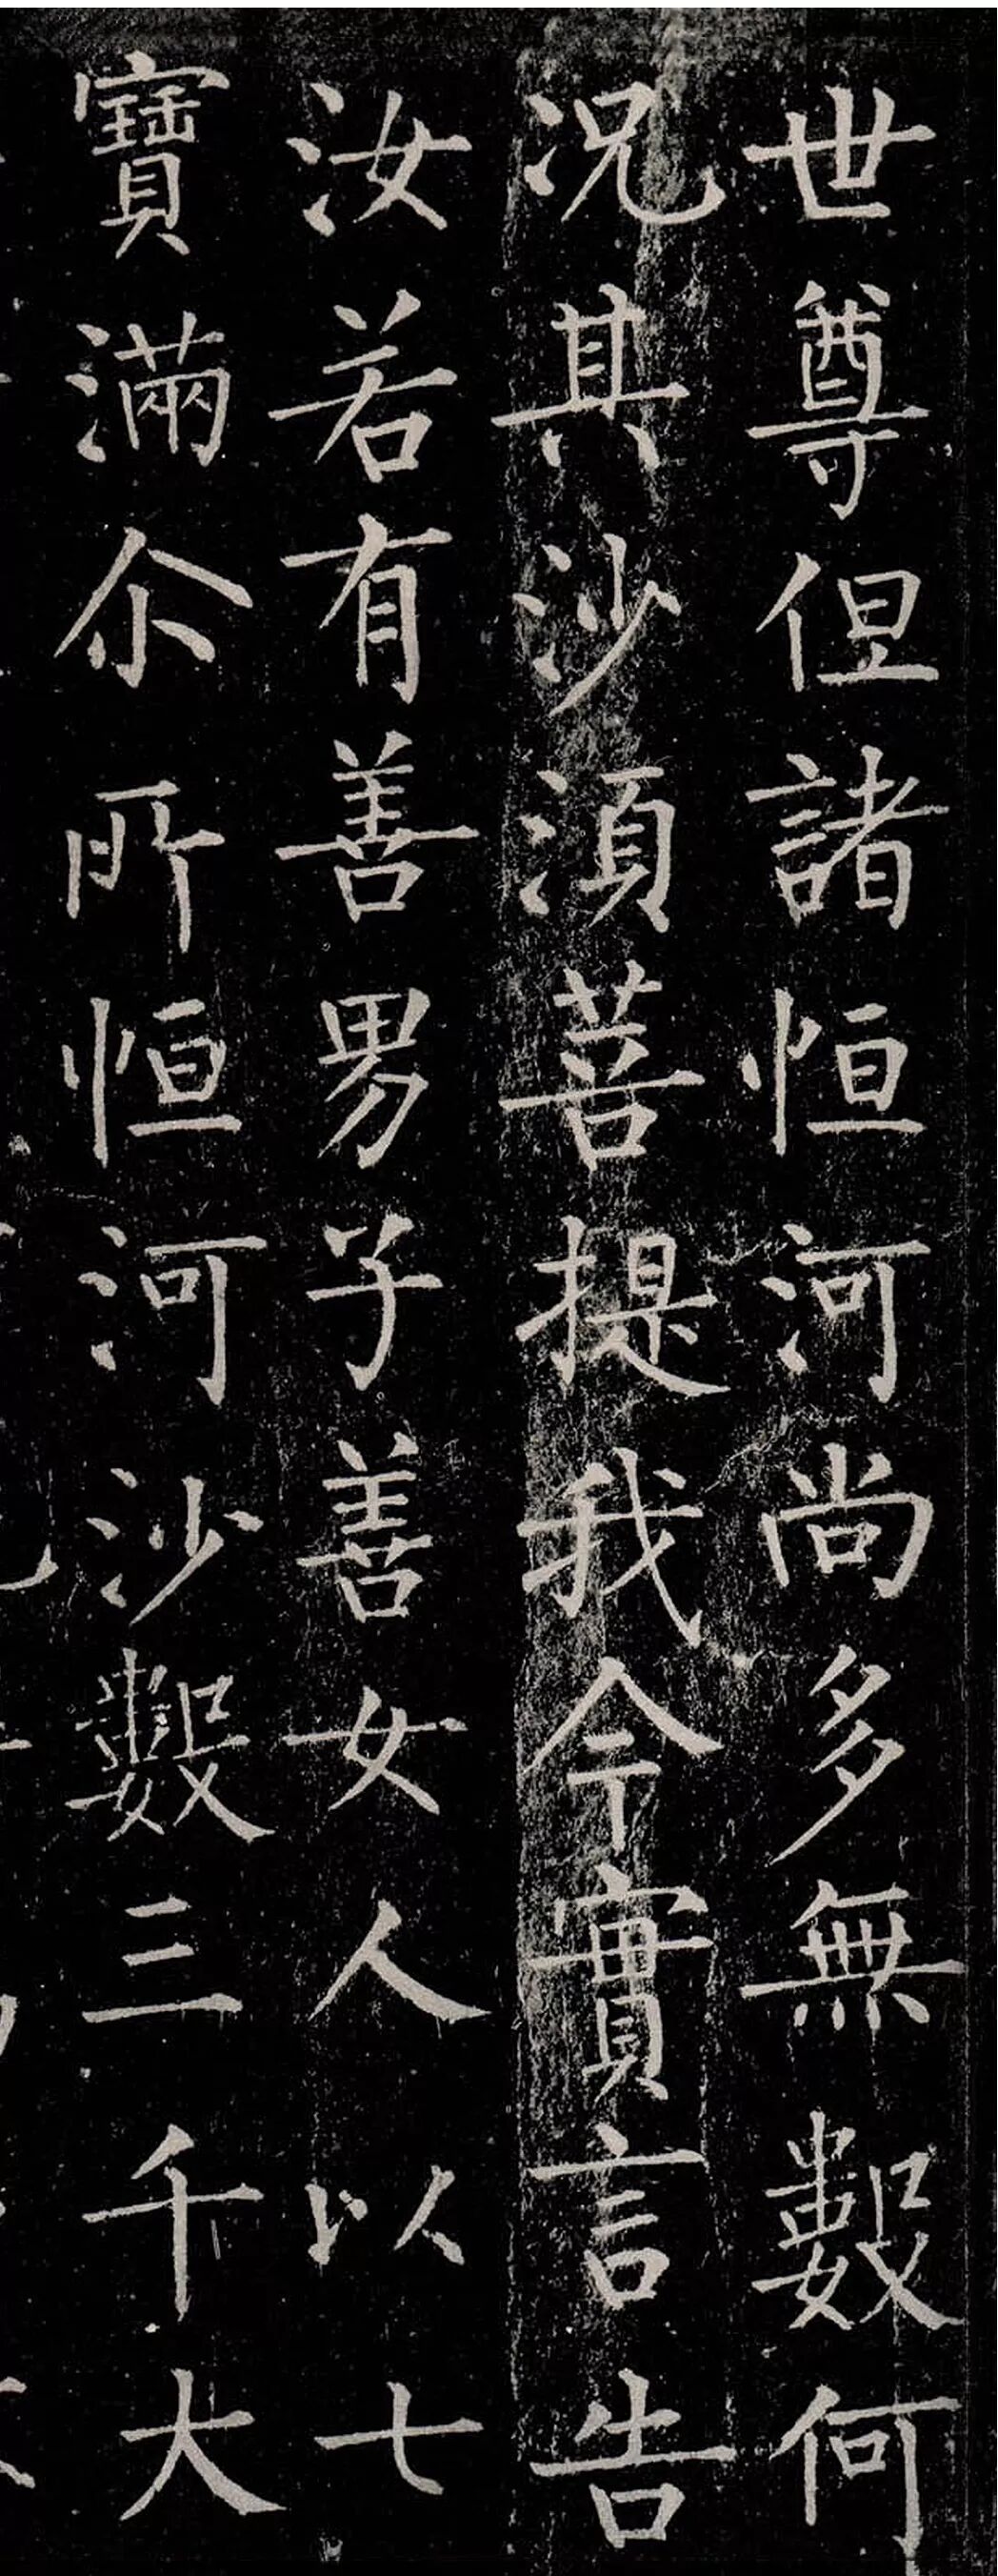 世尊但諸恒河尚多無數何
況其沙須菩提我今實言告
汝若有善男子善女人以七
寶滿尒所恒河沙數三千大